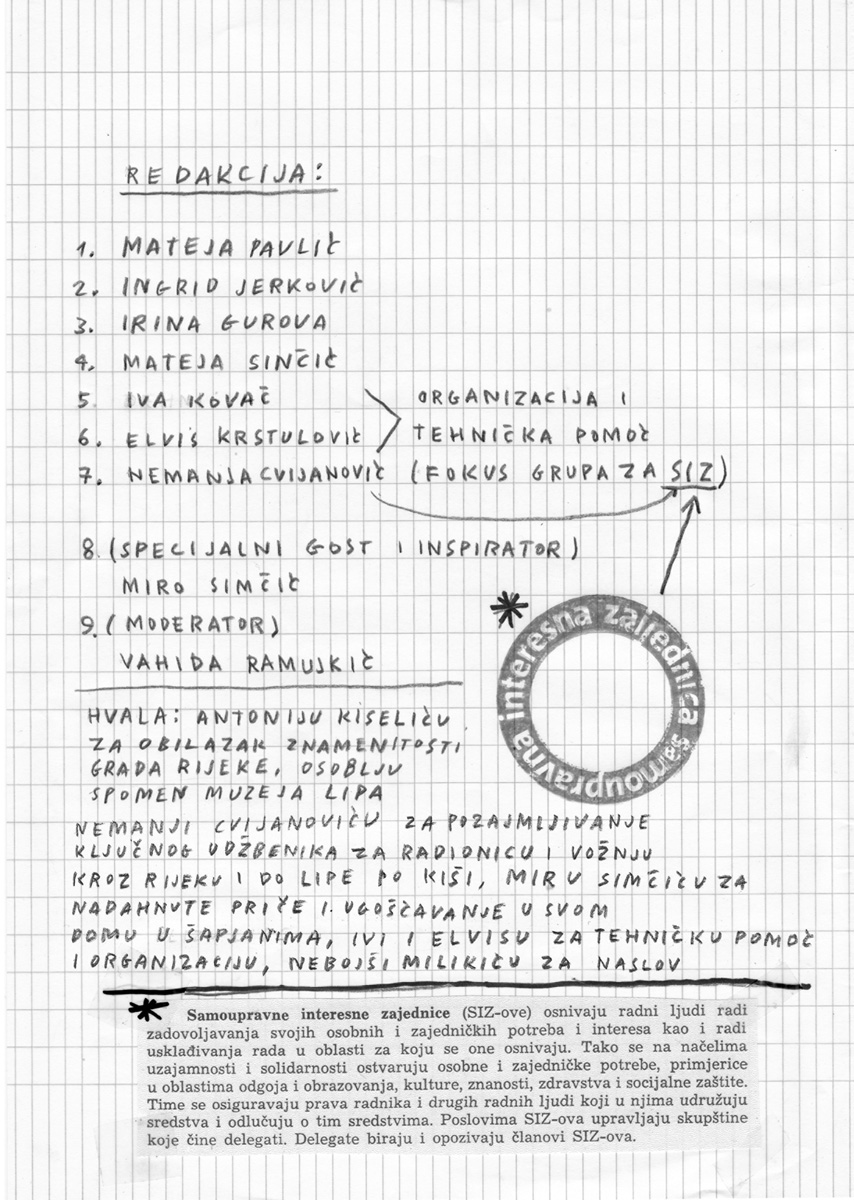 REDAKCIJA:
1. MATEJA PAVLIĆ
2. INGRID JERKOVIĆ
3. IRINA GUROVA
4. MATEJA SINČIĆ
5. IVA KOVAČ
6. ELVIS KRSTULOVIĆ
ORGANIZACIJA I
TEHNIČKA POMOĆ
7. NEMANJA CVIJANOVIĆ (FOKUS GRUPA ZA SIZ)
8. (SPECIJALNI GOST I INSPIRATOR)
MIRO SIMČIĆ
9. (MODERATOR)
VAHIDA RAMUJKIĆ
* samoupravna interesna zajednica
HVALA: ANTONIJU KISELIĆU
ZA OBILAZAK ZNAMENITOSTI
GRADA RIJEKE, OSOBLJU
SPOMEN MUZEJA LIPA
NEMANJI CVIJANOVIĆU ZA POZAJMLJIVANJE
KLJUČNOG UDŽBENIKA ZA RADIONICU I VOŽNJU
KROZ RIJEKU I DO LIPE PO KIŠI, MIRU SIMČIĆU ZA
NADAHNUTE PRIČE I UGOŠĆAVANJE U SVOM
DOMU U ŠAPJANIMA, IVI I ELVISU ZA TEHNIČKU POMOĆ
I ORGANIZACIJU, NEBOJŠI MILIKIĆU ZA NASLOV
* Samoupravne interesne zajednice (SIZ-ove) osnivaju radni ljudi radi
zadovoljavanja svojih osobnih i zajedničkih potreba i interesa kao i radi
usklađivanja rada u oblasti za koju se one osnivaju. Tako se na načelima
uzajamnosti i solidarnosti ostvaruju osobne i zajedničke potrebe, primjerice
u oblastima odgoja i obrazovanja, kulture, znanosti, zdravstva i socijalne zaštite.
Time se osiguravaju prava radnika i drugih radnih ljudi koji u njima udružuju
sredstva i odlučuju o tim sredstvima. Poslovima SIZ-ova upravljaju skupštine
koje čine delegati. Delegate biraju i opozivaju članovi SIZ-ova.